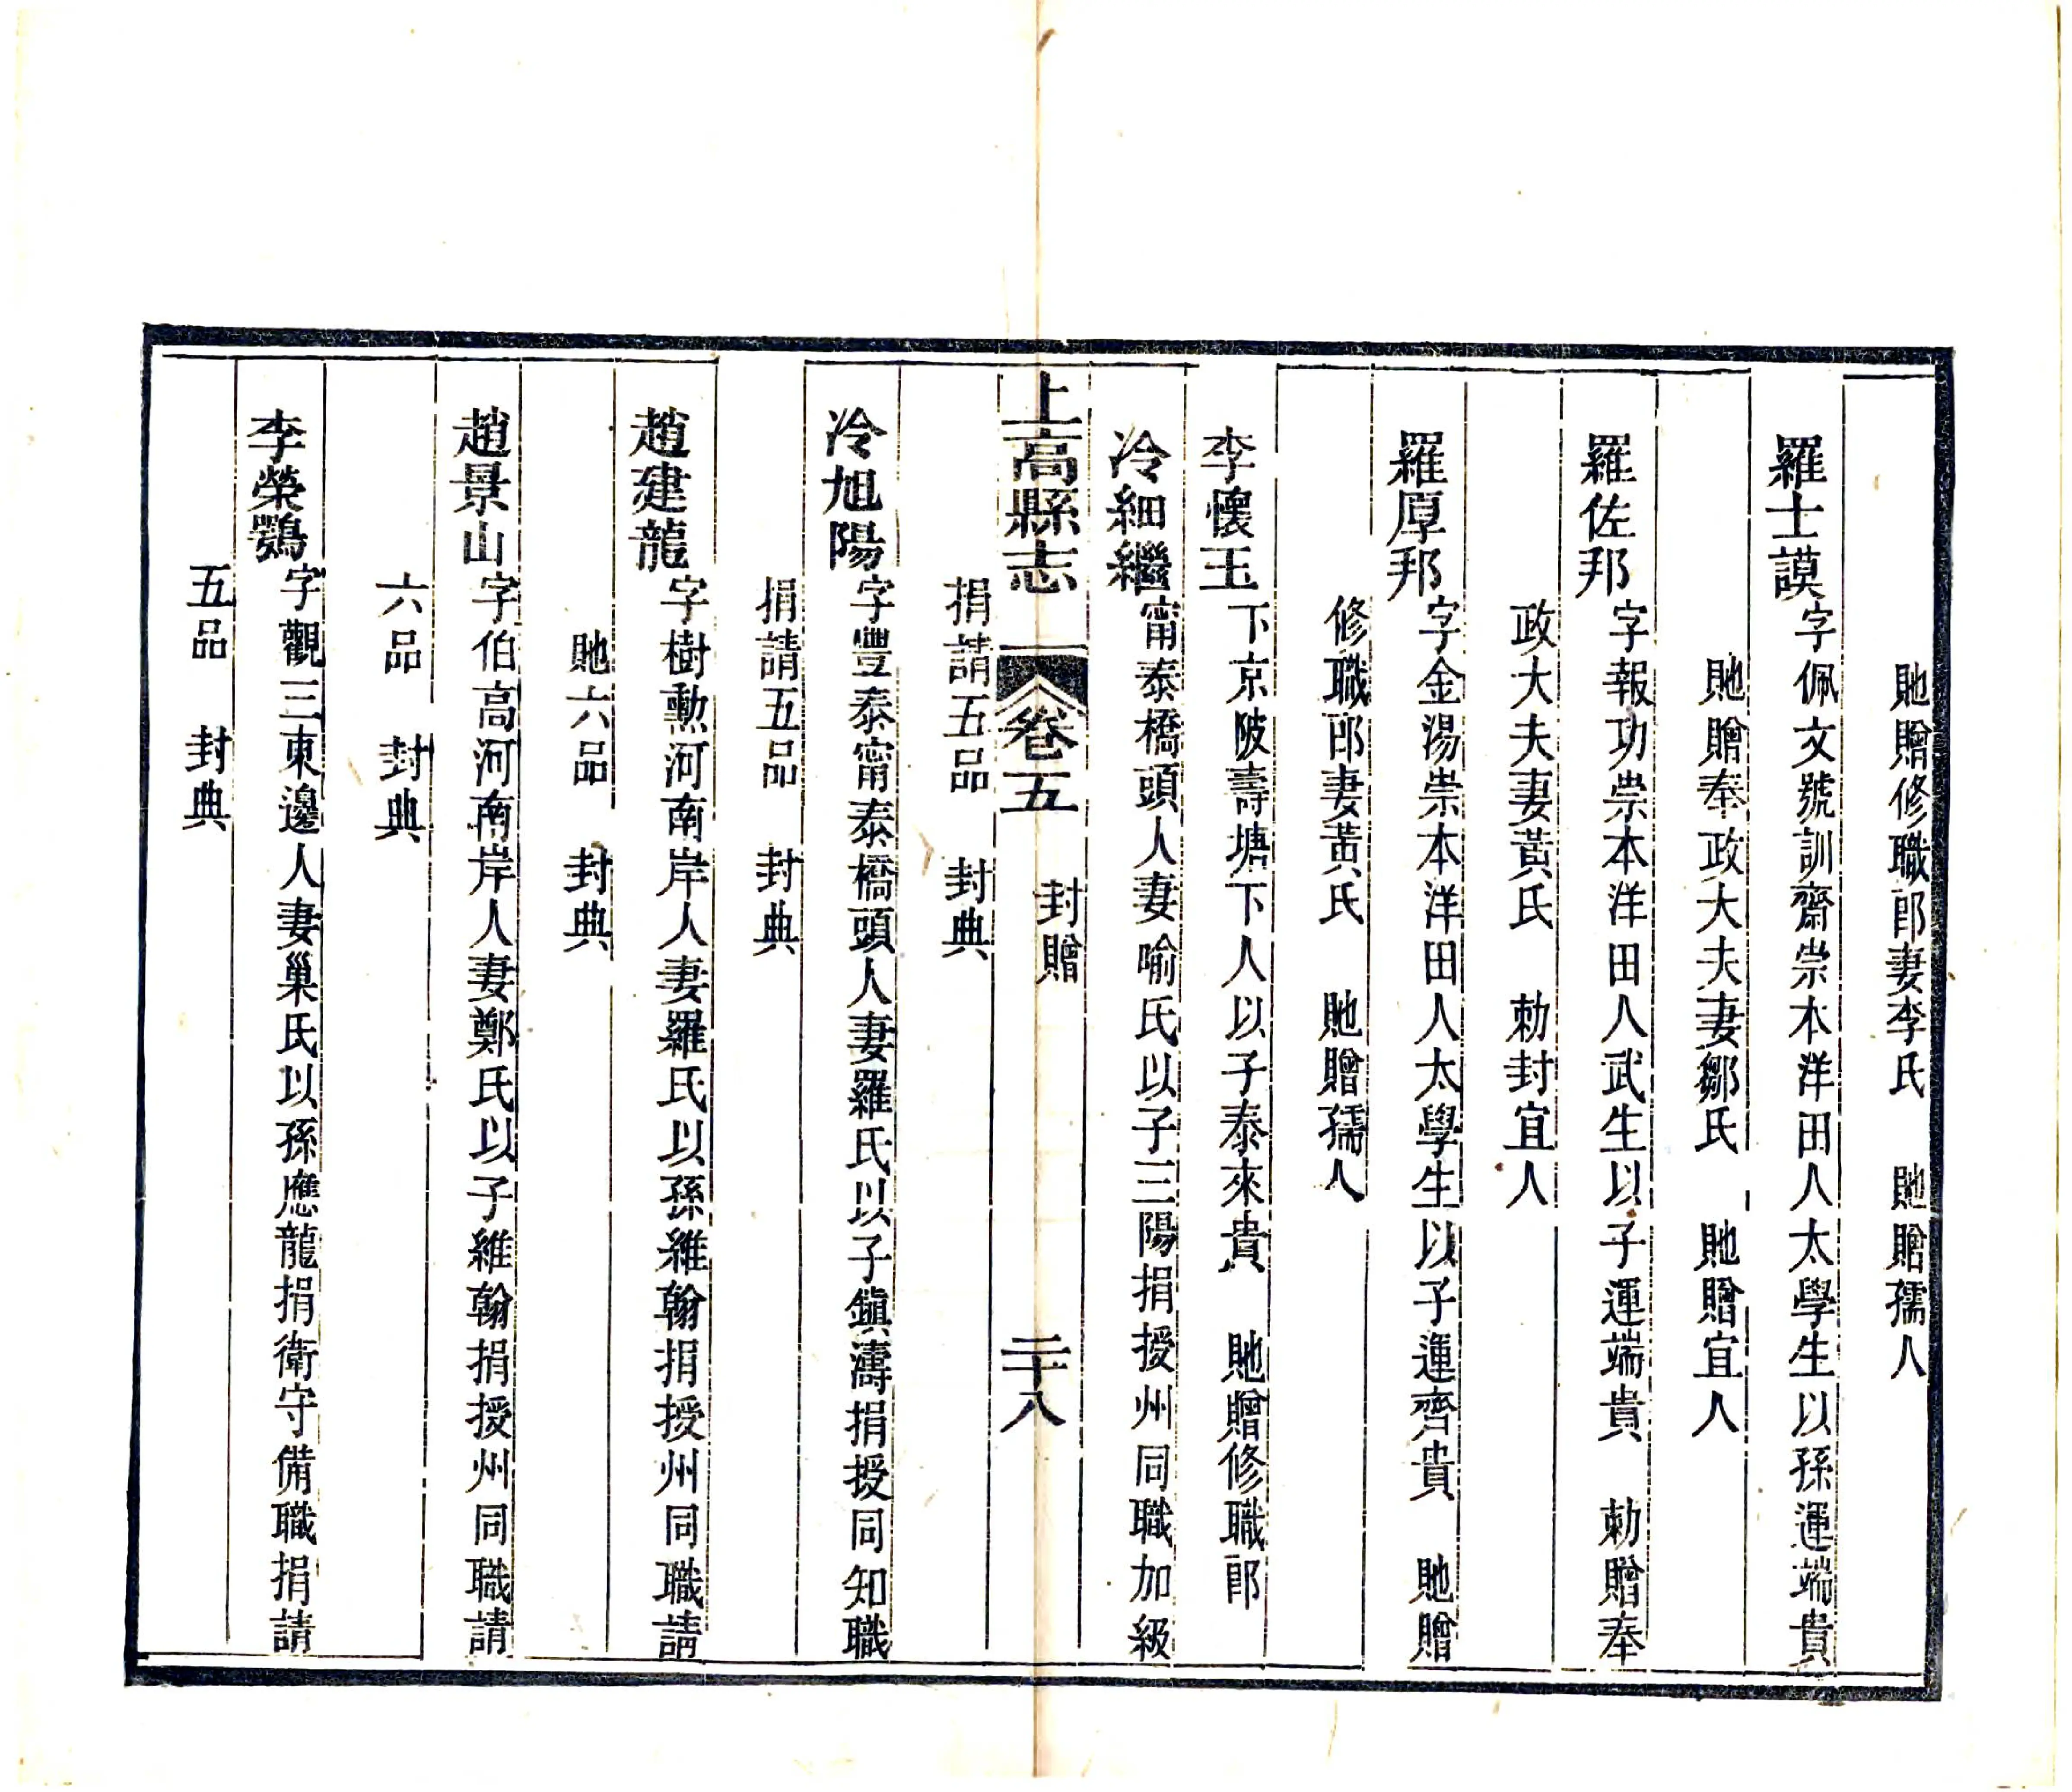 貤贈修職郎妻李氏　貤贈孺人
羅士謨字佩文號訓齋崇本洋田人太學生以孫運端貴
貤贈奉政大夫妻鄒氏　貤贈宜人
羅佐邦字報功崇本洋田人武生以子運端貴　勅贈奉
政大夫妻黃氏　勅封宜人
羅厚邦字金湯崇本洋田人太學生以子運齊貴　貤贈
修職郎妻黃氏　貤贈孺人
李懷玉下京陂壽塘下人以子泰來貴　貤贈修職郎
冷細繼甯泰橋頭人妻喻氏以子三陽捐授州同職加級
捐請五品　封典
上高縣志　卷五　封贈　二十八
冷旭陽字豐泰甯泰橋頭人妻羅氏以子鎮濤捐授同知職
捐請五品　封典
趙建龍字樹勲河南岸人妻羅氏以孫維翰捐授州同職請
貤六品　封典
趙景山字伯高河南岸人妻鄭氏以子維翰捐授州同職請
六品　封典
李榮鶚字觀三東邊人妻巢氏以孫應龍捐衛守備職捐請
五品　封典